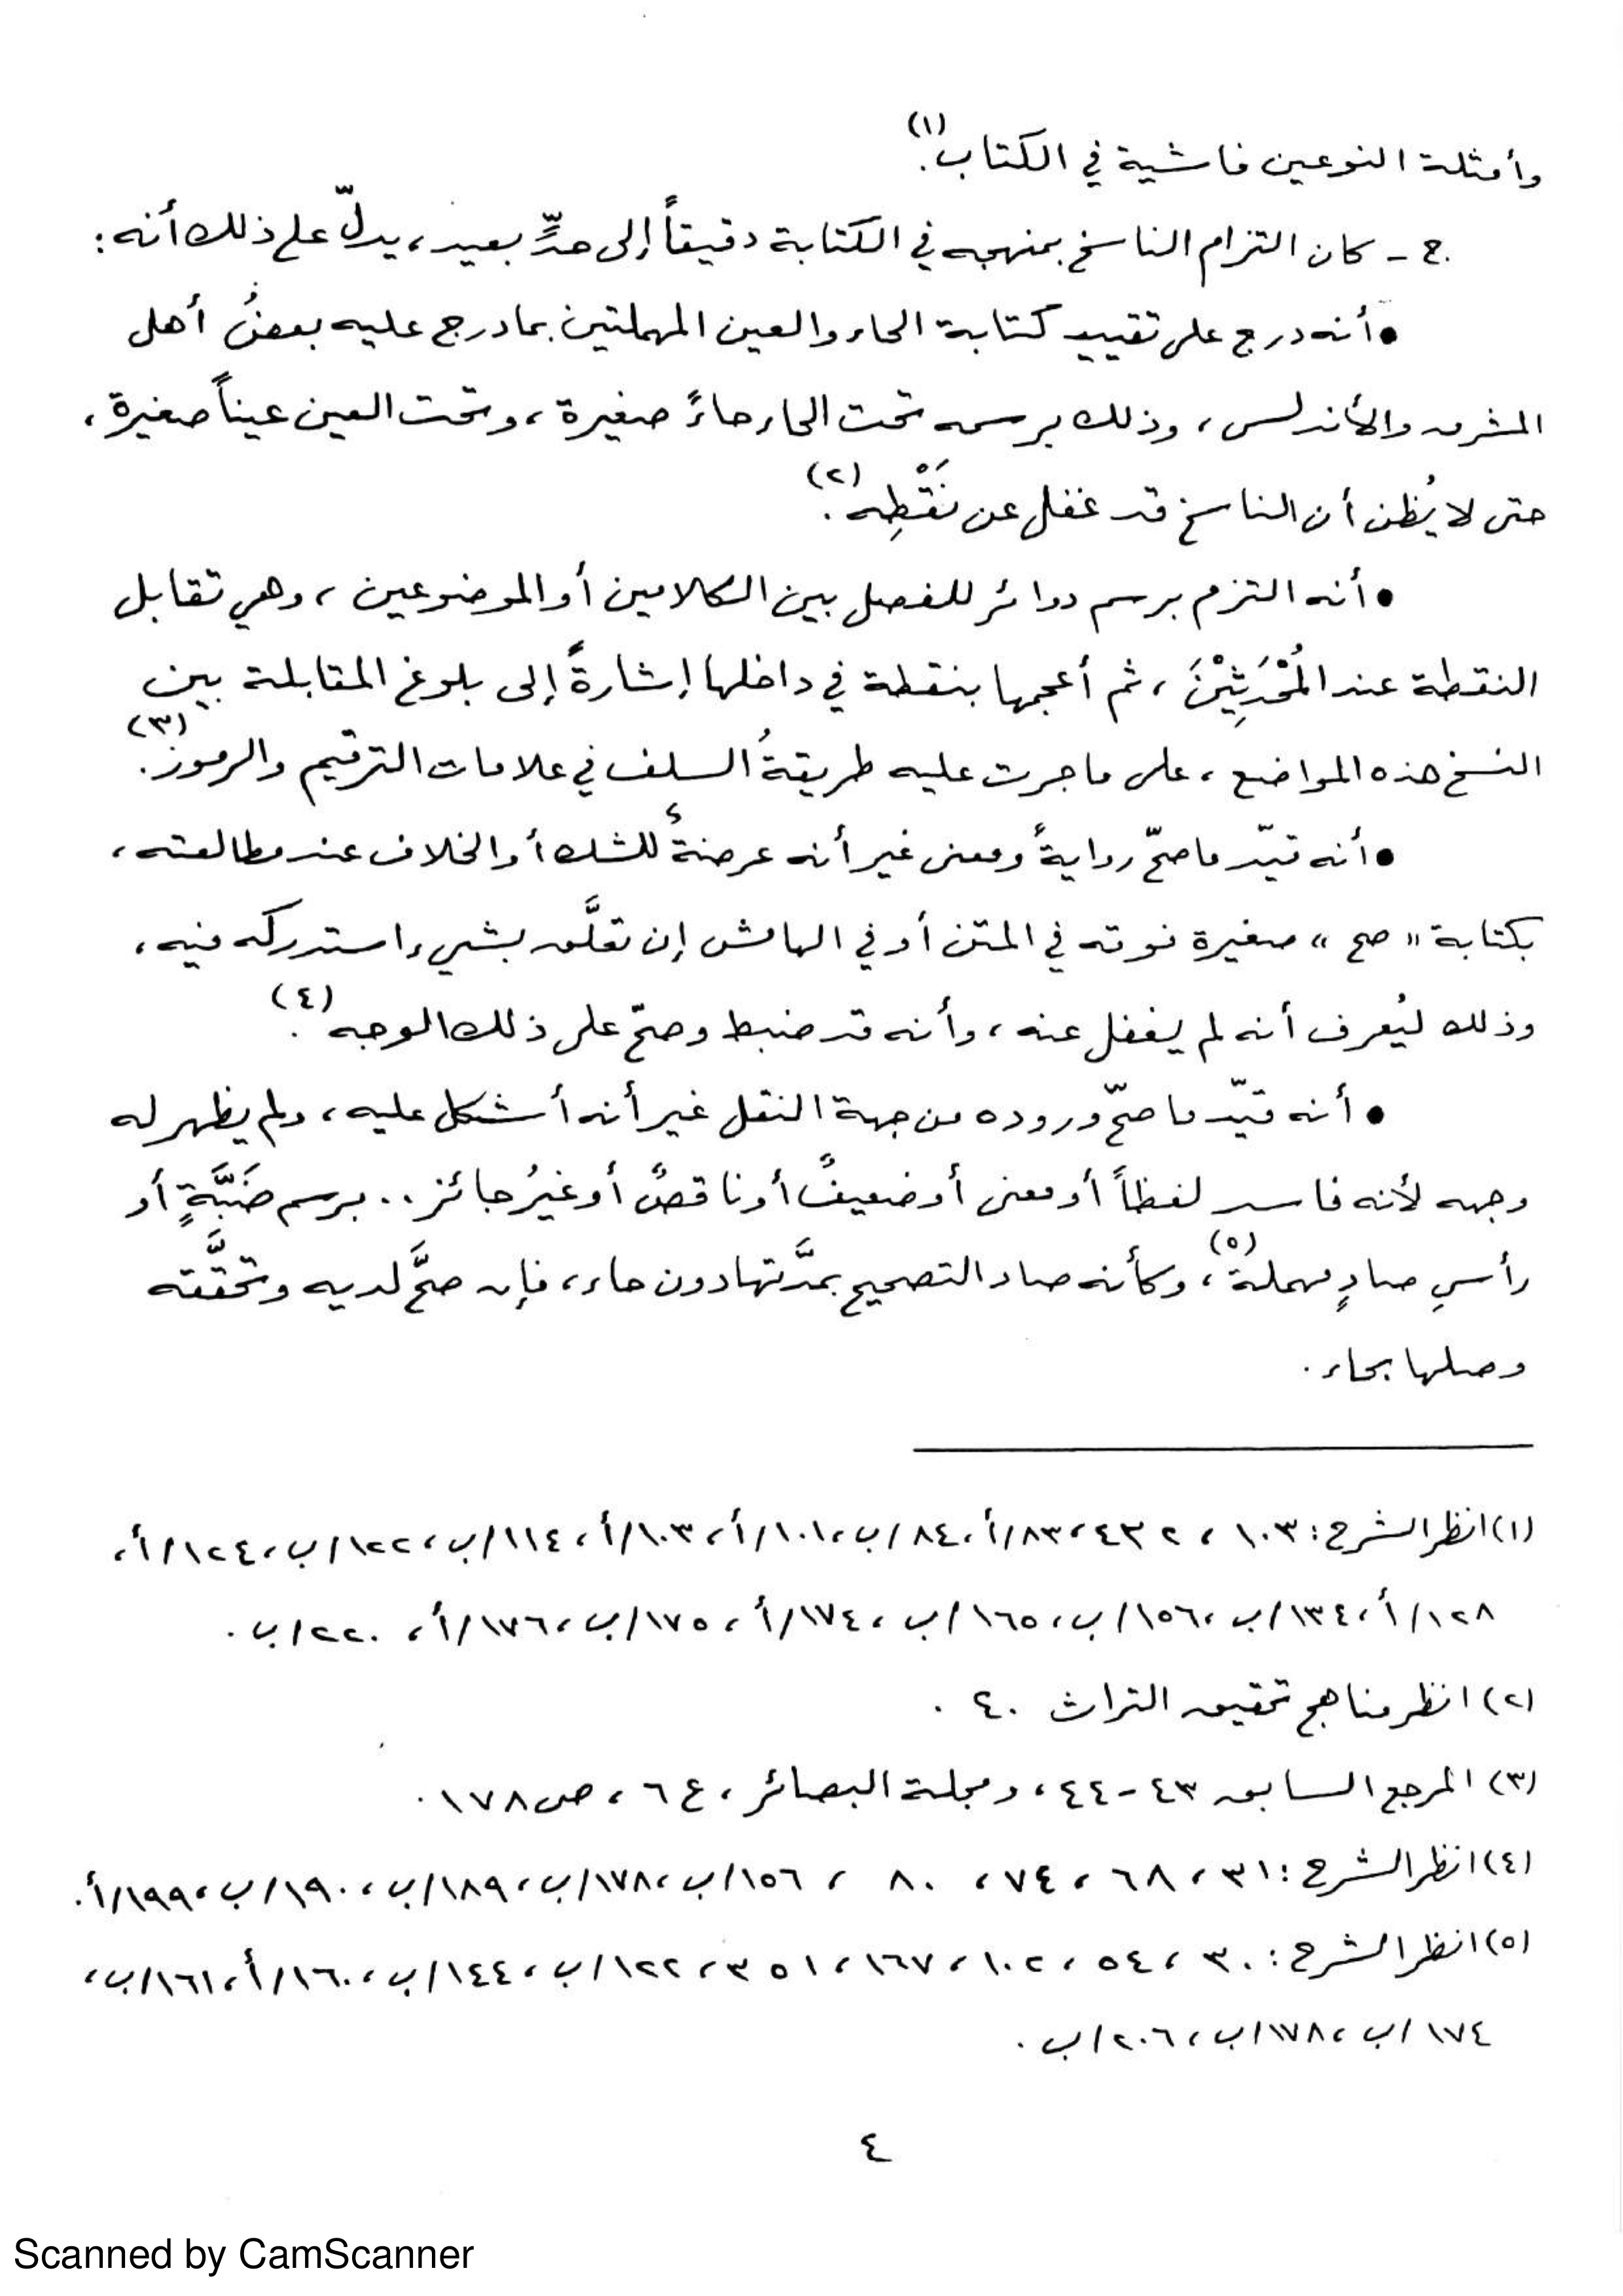 وأمثلة النوعين فاشية في الكتاب(١).
ج - كان التزام الناسخ بمنهجه في الكتابة دقيقاً إلى حدٍّ بعيد، يدلّ على ذلك أنه:
• أنه درج على تقييد كتابة الحاء والعين المهملتين بما درج عليه بعضُ أهل
المشرق والأندلس، وذلك برسمه تحت الحاء حاءً صغيرة، وتحت العين عيناً صغيرة،
حتى لا يُظن أن الناسخ قد غفل عن نَقْطِه(٢).
• أنه التزم برسم دوائر للفصل بين الكلامين أو الموضوعين، وهي تقابل
النقطة عند المُحْدَثِيْنَ، ثم أعجمها بنقطة في داخلها إشارةً إلى بلوغ المقابلة بين
النسخ هذه المواضع، على ما جرت عليه طريقةُ السلف في علامات الترقيم والرموز(٣).
• أنه قيّد ما صحّ روايةً ومعنى غير أنه عرضةٌ للشك أو الخلاف عند مطالعته،
بكتابة "صح" صغيرة فوقه في المتن أو في الهامش إن تعلَّق بشيء استدركه فيه،
وذلك ليُعرف أنه لم يغفل عنه، وأنه قد ضبط وصحّ على ذلك الوجه(٤).
• أنه قيّد ما صحّ وروده من جهة النقل غير أنه أشكل عليه، ولم يظهر له
وجهه لأنه فاسد لفظاً أو معنى أو ضعيفٌ أو ناقصٌ أو غيرُ جائز.. برسم ضَبَّةٍ أو
رأسِ صادٍ مهملة(٥)، وكأنه صاد التصحيح بمدَّتها دون حاء، فإن صحَّ لديه وتحقَّقه
وصلها بحاء.
(١) انظر الشرح: ١٠٣، ٤٣٢، ٨٣/أ، ٨٤/ب، ١٠١/أ، ١٠٣/أ، ١١٤/ب، ١٢٢/ب، ١٢٤/أ،
١٢٨/أ، ١٣٤/ب، ١٥٦/ب، ١٦٥/ب، ١٧٤/أ، ١٧٥/ب، ١٧٦/أ، ٢٢٠/ب.
(٢) انظر مناهج تحقيق التراث ٤٠.
(٣) المرجع السابق ٤٣-٤٤، ومجلة البصائر، ع ٦، ص ١٧٨.
(٤) انظر الشرح: ٣١، ٦٨، ٧٤، ٨٠، ١٥٦/ب، ١٧٨/ب، ١٨٩/ب، ١٩٠/ب، ١٩٩/أ.
(٥) انظر الشرح: ٣٠، ٥٤، ١٠٢، ١٦٧، ٣٥١، ١٢٢/ب، ١٤٤/ب، ١٦٠/أ، ١٦١/ب،
١٧٤/ب، ١٧٨/ب، ٢٠٦/ب.
٤
Scanned by CamScanner